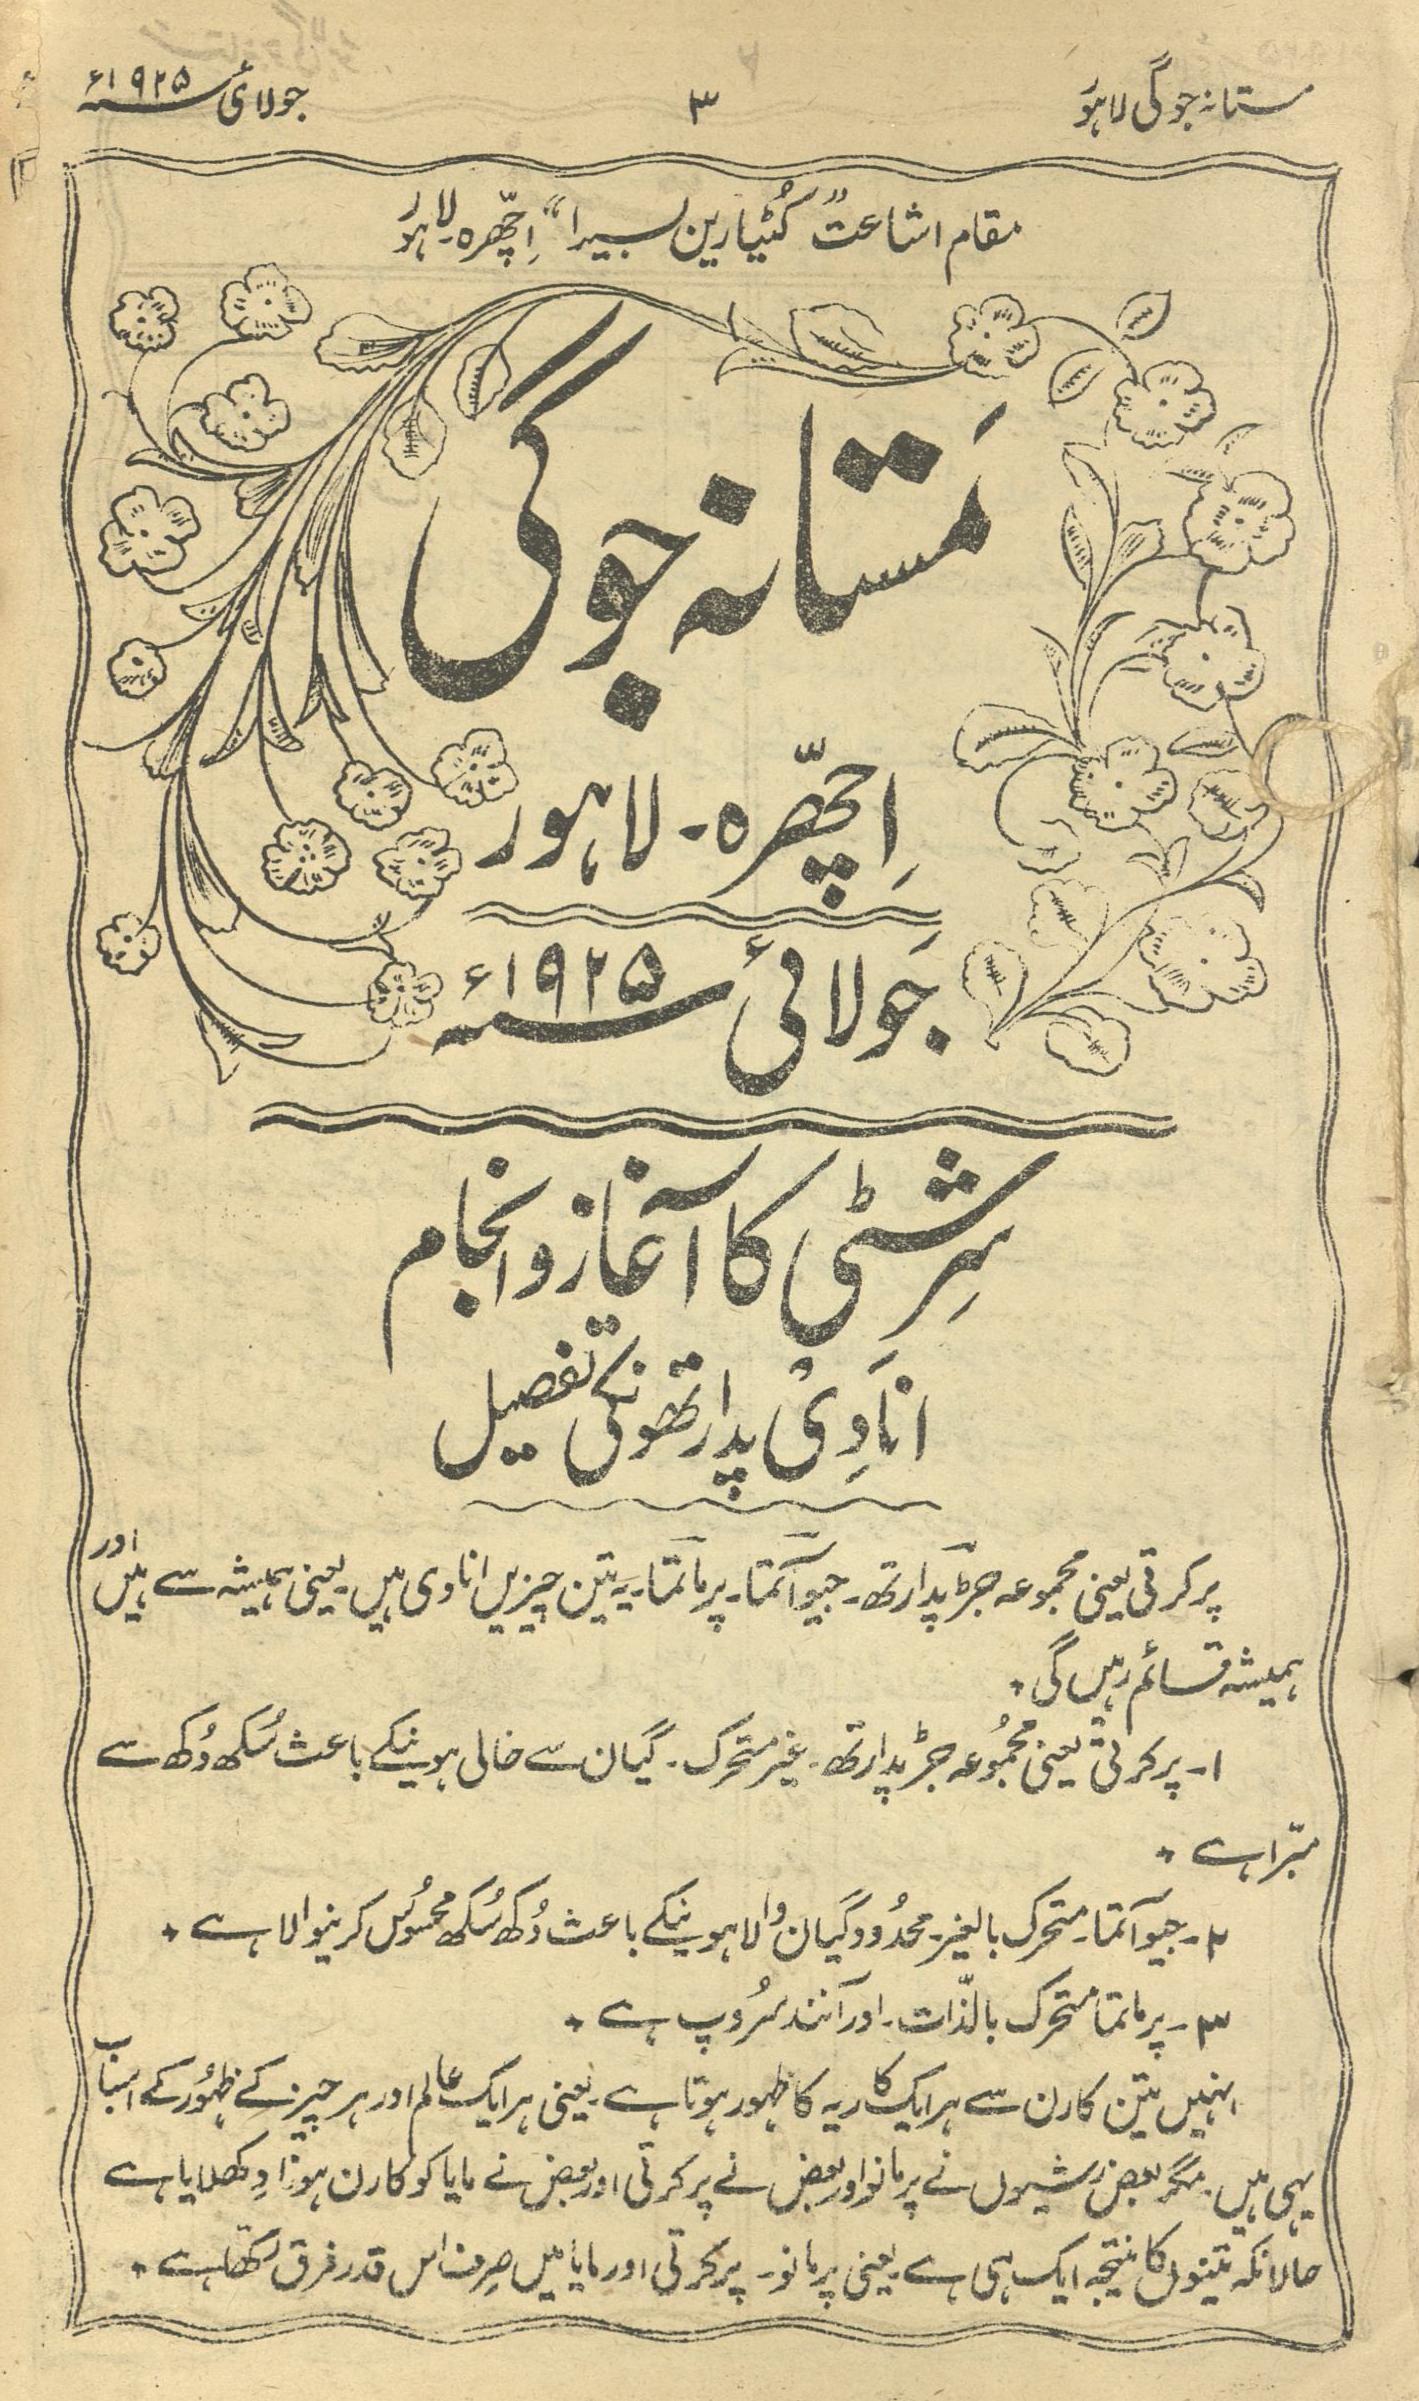 مستانہ جوگی لاہور
۳
جولائی سنہ ۱۹۲۵ء
مقام اشاعت "کُٹیا رین بسیرا" اِچھّرہ۔ لاہور
مَستانہ جوگی
اِچھّرہ۔ لاہور
جَولائی سنہ ۱۹۲۵ء
سِرشٹی کا آغاز و انجام
انادِی پدارتھونکی تفصیل
پرکرتی یعنی مجموعہ جڑ پدارتھ۔ جیو آتما۔ پرماتما۔ یہ تین چیزیں انادی ہیں۔ یعنی ہمیشہ سے ہیں اور
ہمیشہ قائم رہیں گی ٭
۱۔ پرکرتی یعنی مجمُوعہ جڑ پدارتھ۔ غیر متحرک۔ گیان سے خالی ہونیکے باعث سُکھ دُکھ سے
مبّرا ہے ٭
۲۔ جیو آتما۔ متحرک بالغیر۔ محدُود گیان والا ہونیکے باعث دُکھ سُکھ محسُوس کرنیوالا ہے ٭
۳۔ پرماتما متحرک بالذّات۔ اور آنند سرُوپ ہے ٭
انہیں تین کارن سے ہر ایک کاریہ کا ظہور ہوتا ہے۔ یعنی ہر ایک عالم اور ہر چیز کے ظہُور کے اسباب
یہی ہیں۔ مگر بعض رشیوں نے پرمانو اور بعض نے پرکرتی اور بعض نے مایا کو کارن ہونا دِکھلایا ہے
حالانکہ تینوں کا نتیجہ ایک ہی ہے۔ یعنی پرمانو۔ پرکرتی اور مایا میں صِرف اس قدر فرق رکھتا ہے ٭